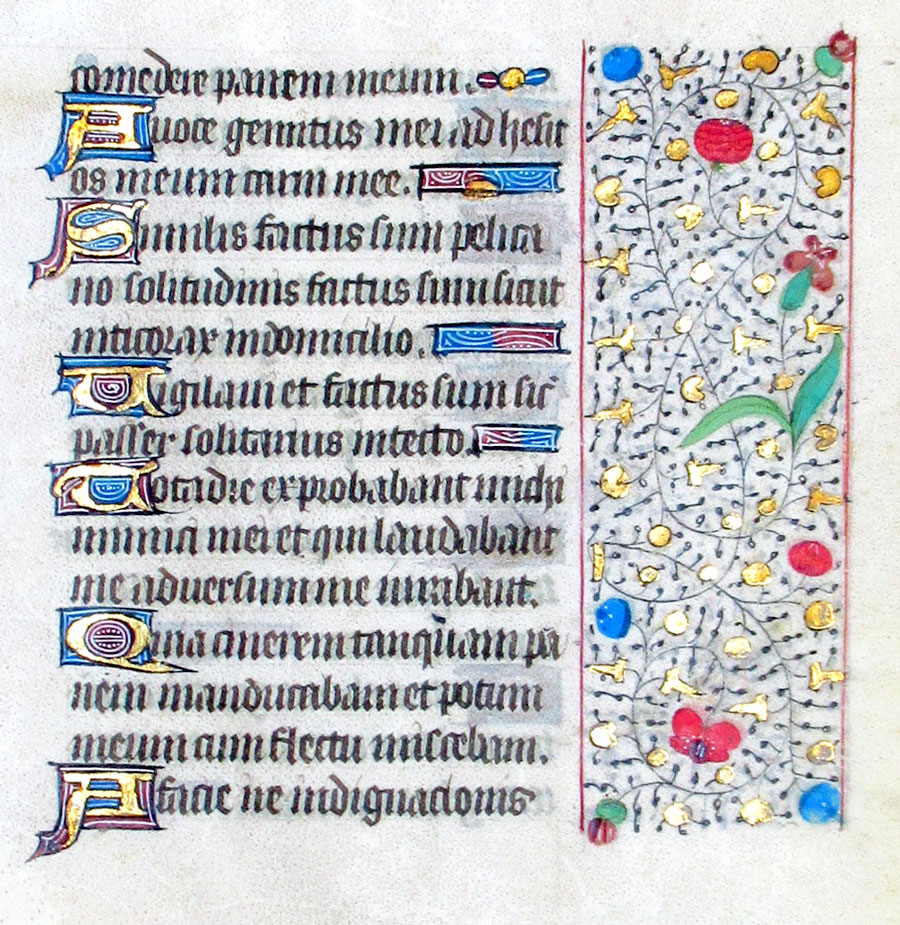 comedere panem meum.
A uoce gemitus mei adhesit
os meum carni mee.
Similis factus sum pelica
no solitudinis factus sum sicut
niticorax in domicilio.
Uigilaui et factus sum sic̄
passer solitarius in tecto.
Tota die exprobabant michi
inimici mei et qui laudabant
me aduersum me iurabant.
Quia cinerem tanquam pa
nem manducabam et potum
meum cum fletu miscebam.
A facie ire indignacionis